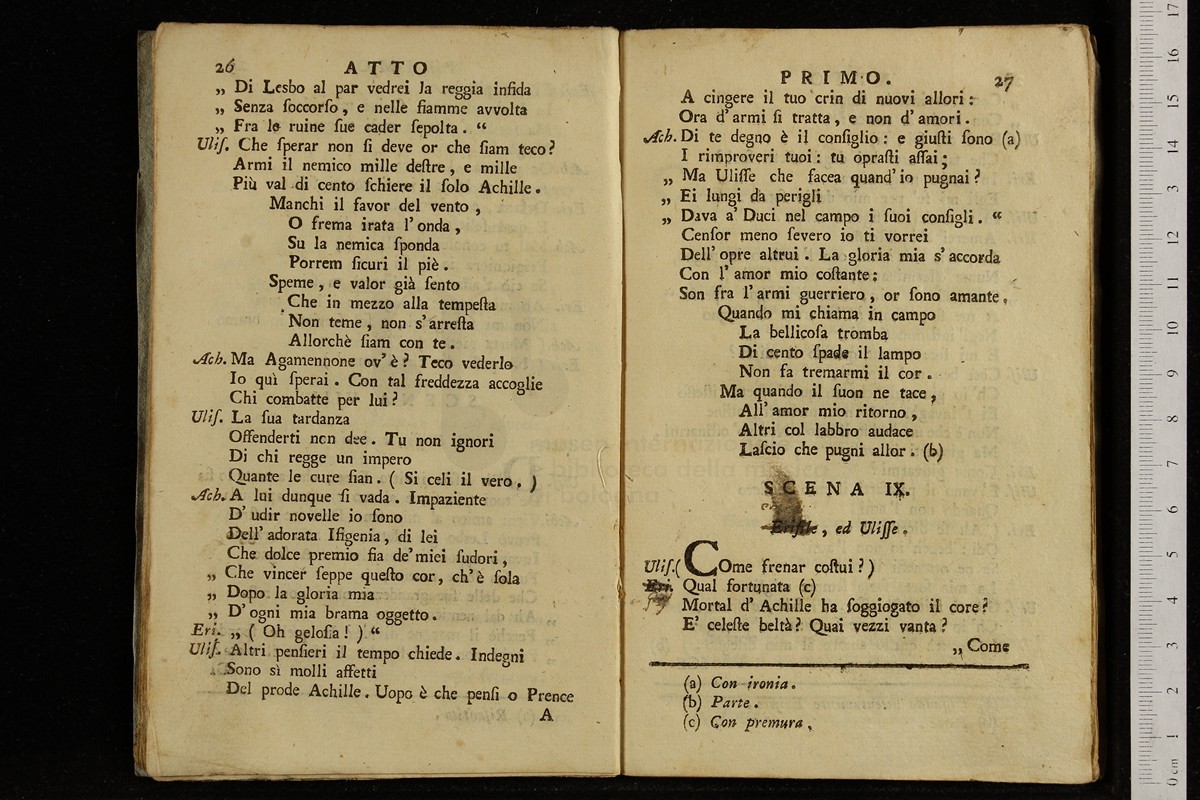 26 ATTO
„ Di Lesbo al par vedrei la reggia infida
„ Senza ſoccorſo, e nelle fiamme avvolta
„ Fra le ruine ſue cader ſepolta. “
Uliſ. Che ſperar non ſi deve or che ſiam teco?
Armi il nemico mille deſtre, e mille
Più val di cento ſchiere il ſolo Achille.
Manchi il favor del vento,
O frema irata l'onda,
Su la nemica ſponda
Porrem ſicuri il piè.
Speme, e valor già ſento
Che in mezzo alla tempeſta
Non teme, non s'arreſta
Allorchè ſiam con te.
Ach. Ma Agamennone ov'è? Teco vederlo
Io quì ſperai. Con tal freddezza accoglie
Chi combatte per lui?
Uliſ. La ſua tardanza
Offenderti non dee. Tu non ignori
Di chi regge un impero
Quante le cure ſian. ( Si celi il vero. )
Ach. A lui dunque ſi vada. Impaziente
D'udir novelle io ſono
Dell'adorata Ifigenia, di lei
Che dolce premio fia de'miei ſudori,
„ Che vincer ſeppe queſto cor, ch'è ſola
„ Dopo la gloria mia
„ D'ogni mia brama oggetto.
Eri. „ ( Oh geloſia! ) “
Uliſ. Altri penſieri il tempo chiede. Indegni
Sono sì molli affetti
Del prode Achille. Uopo è che penſi o Prence
A
PRIMO. 27
A cingere il tuo crin di nuovi allori:
Ora d'armi ſi tratta, e non d'amori.
Ach. Di te degno è il conſiglio: e giuſti ſono (a)
I rimproveri tuoi: tu opraſti aſſai;
„ Ma Uliſſe che facea quand'io pugnai?
„ Ei lungi da perigli
„ Dava a' Duci nel campo i ſuoi conſigli. “
Cenſor meno ſevero io ti vorrei
Dell'opre altrui. La gloria mia s'accorda
Con l'amor mio coſtante:
Son fra l'armi guerriero, or ſono amante.
Quando mi chiama in campo
La bellicoſa tromba
Di cento ſpade il lampo
Non fa tremarmi il cor.
Ma quando il ſuon ne tace,
All'amor mio ritorno,
Altri col labbro audace
Laſcio che pugni allor. (b)
SCENA IX.
Erifile, ed Uliſſe.
Uliſ. ( COme frenar coſtui? )
Eri. Qual fortunata (c)
Mortal d'Achille ha ſoggiogato il core?
E' celeſte beltà? Quai vezzi vanta?
„ Come
(a) Con ironia.
(b) Parte.
(c) Con premura.
museo internazionale
e biblioteca della musica
di bologna
17
16
15
14
13
12
11
10
9
8
7
6
5
4
3
2
1
0 cm